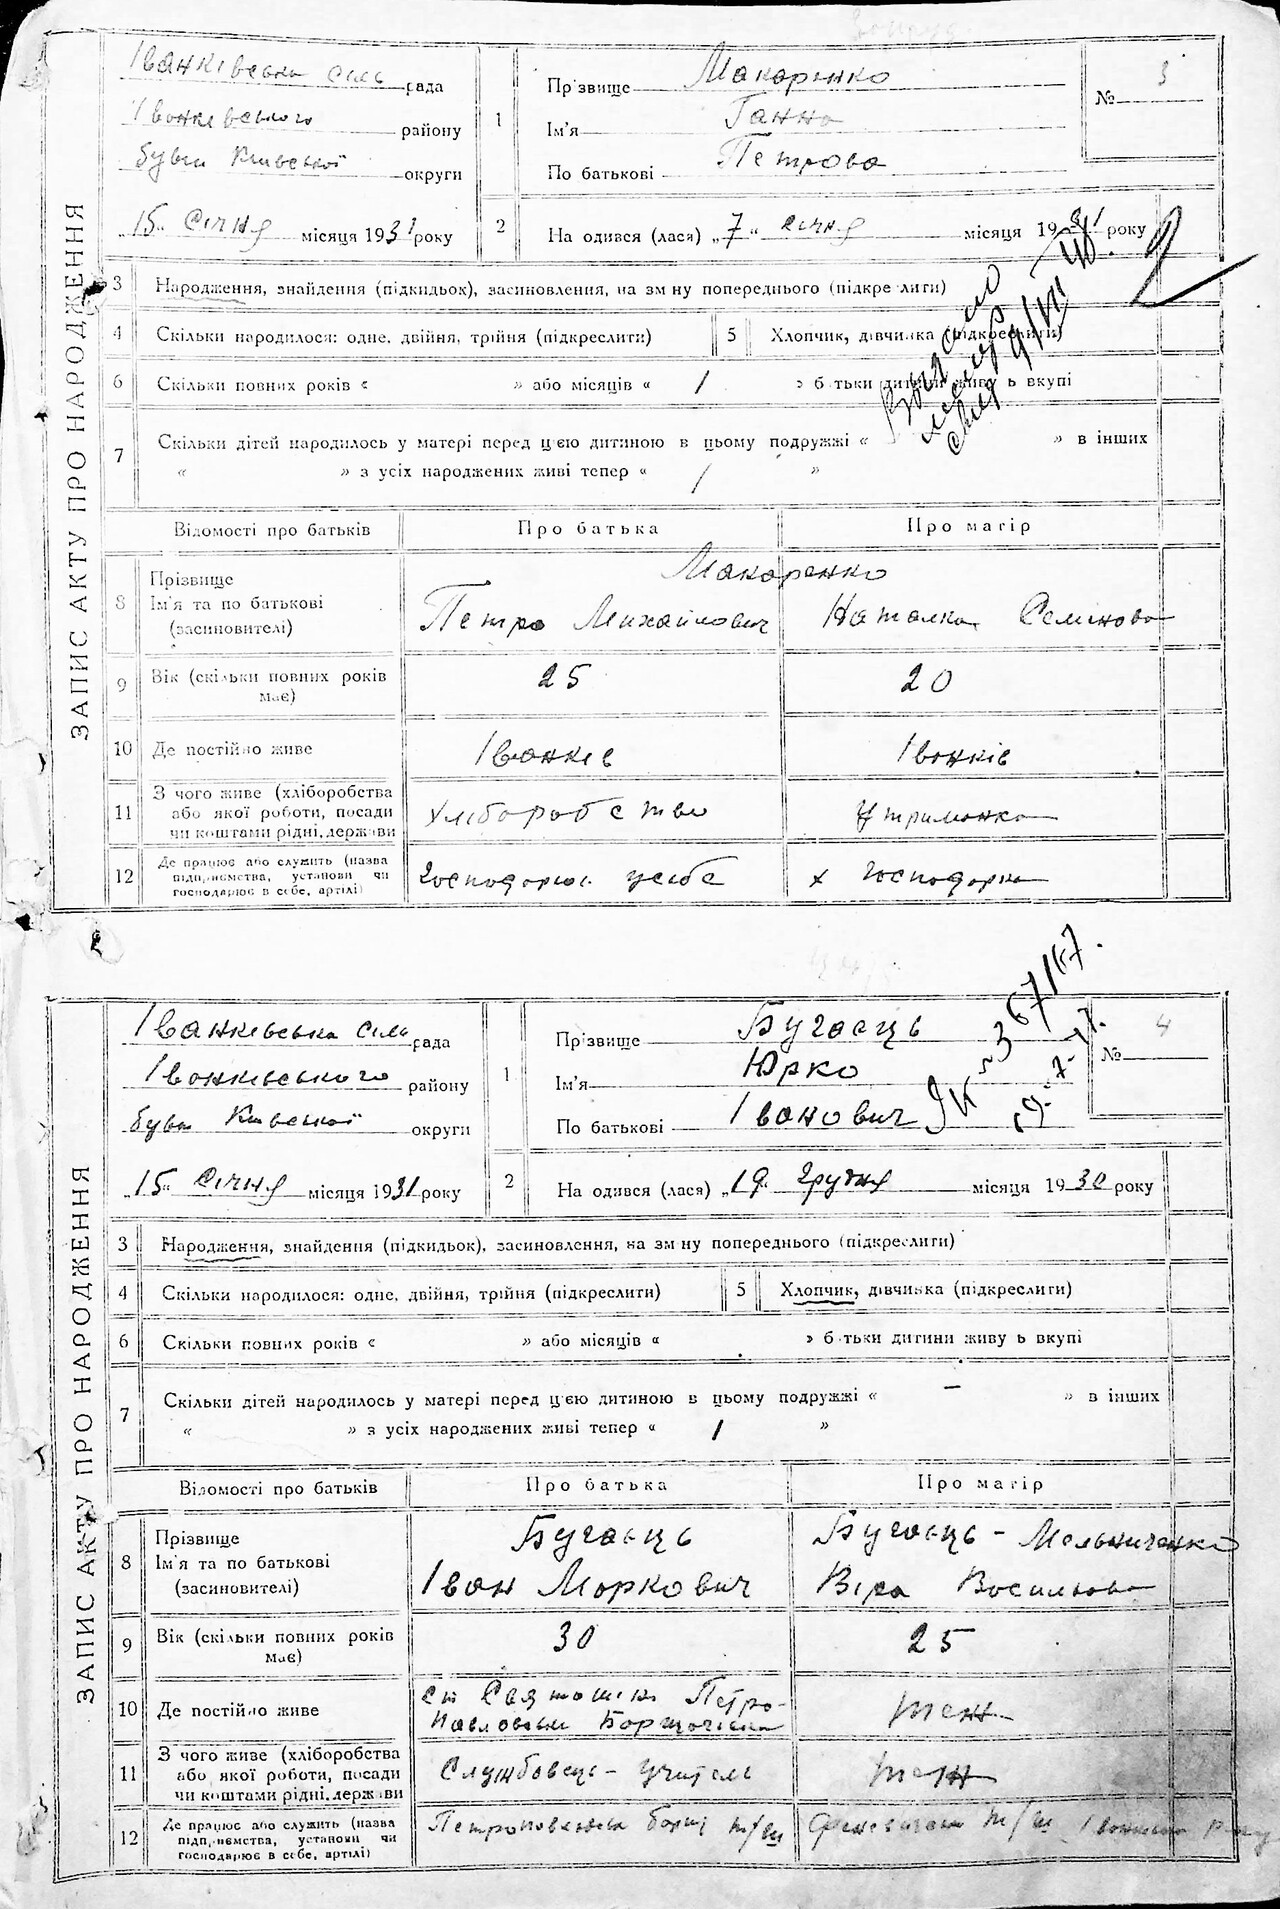 ЗАПИС АКТУ ПРО НАРОДЖЕННЯ
Іванківська сель рада
Іванківського району
бувш Київської округи
„15“ Січня місяця 1931 року
1
Прізвище Макаренко
Ім'я Ганна
По батькові Петрова
№ 3
2 На одився (лася) „7“ січня місяця 1931 року
3 Народження, знайдення (підкидьок), засиновлення, на зм ну попереднього (підкре лити)
4 Скільки народилося: одне, двійня, трійня (підкреслити) 5 Хлопчик, дівчинка (підкреслити)
6 Скільки повних років « » або місяців « / » б тьки дитини живу ь вкупі
7 Скільки дітей народилось у матері перед ц'єю дитиною в цьому подружжі « » в інших
« » з усіх народжених живі тепер « / »
Відомості про батьків Про батька Про матір
8 Прізвище Макаренко
Ім'я та по батькові Петро Михайлович Наталка Семенова
(засиновителі)
9 Вік (скільки повних років має) 25 20
10 Де постійно живе Іванків Іванків
11 З чого живе (хліборобства або якої роботи, посади чи коштами рідні, держави хліборобство Утриманка
12 Де працює або служить (назва підприємства, установи чи господарює в себе, артілі) х господарка
2
ЗАПИС АКТУ ПРО НАРОДЖЕННЯ
Іванківська сель рада
Іванківського району
бувш Київської округи
„15“ Січня місяця 1931 року
1
Прізвище Бугаєць
Ім'я Юрко
По батькові Іванович
№ 4
367167.
2 На одився (лася) „19“ грудня місяця 1930 року
3 Народження, знайдення (підкидьок), засиновлення, на зм ну попереднього (підкреслити)
4 Скільки народилося: одне, двійня, трійня (підкреслити) 5 Хлопчик, дівчинка (підкреслити)
6 Скільки повних років « » або місяців « » б тьки дитини живу ь вкупі
7 Скільки дітей народилось у матері перед ц'єю дитиною в цьому подружжі « – » в інших
« » з усіх народжених живі тепер « / »
Відомості про батьків Про батька Про матір
8 Прізвище Бугаєць Бугаєць - Мельниченко
Ім'я та по батькові Іван Маркович Віра Васильова
(засиновителі)
9 Вік (скільки повних років має) 30 25
10 Де постійно живе ст Святошин Петро- теж
Павловська Борщагівка
11 З чого живе (хліборобства або якої роботи, посади чи коштами рідні, держави Службовець - учитель теж
12 Де працює або служить (назва підприємства, установи чи господарює в себе, артілі) Петропавлівська борщ т/ш т/ш